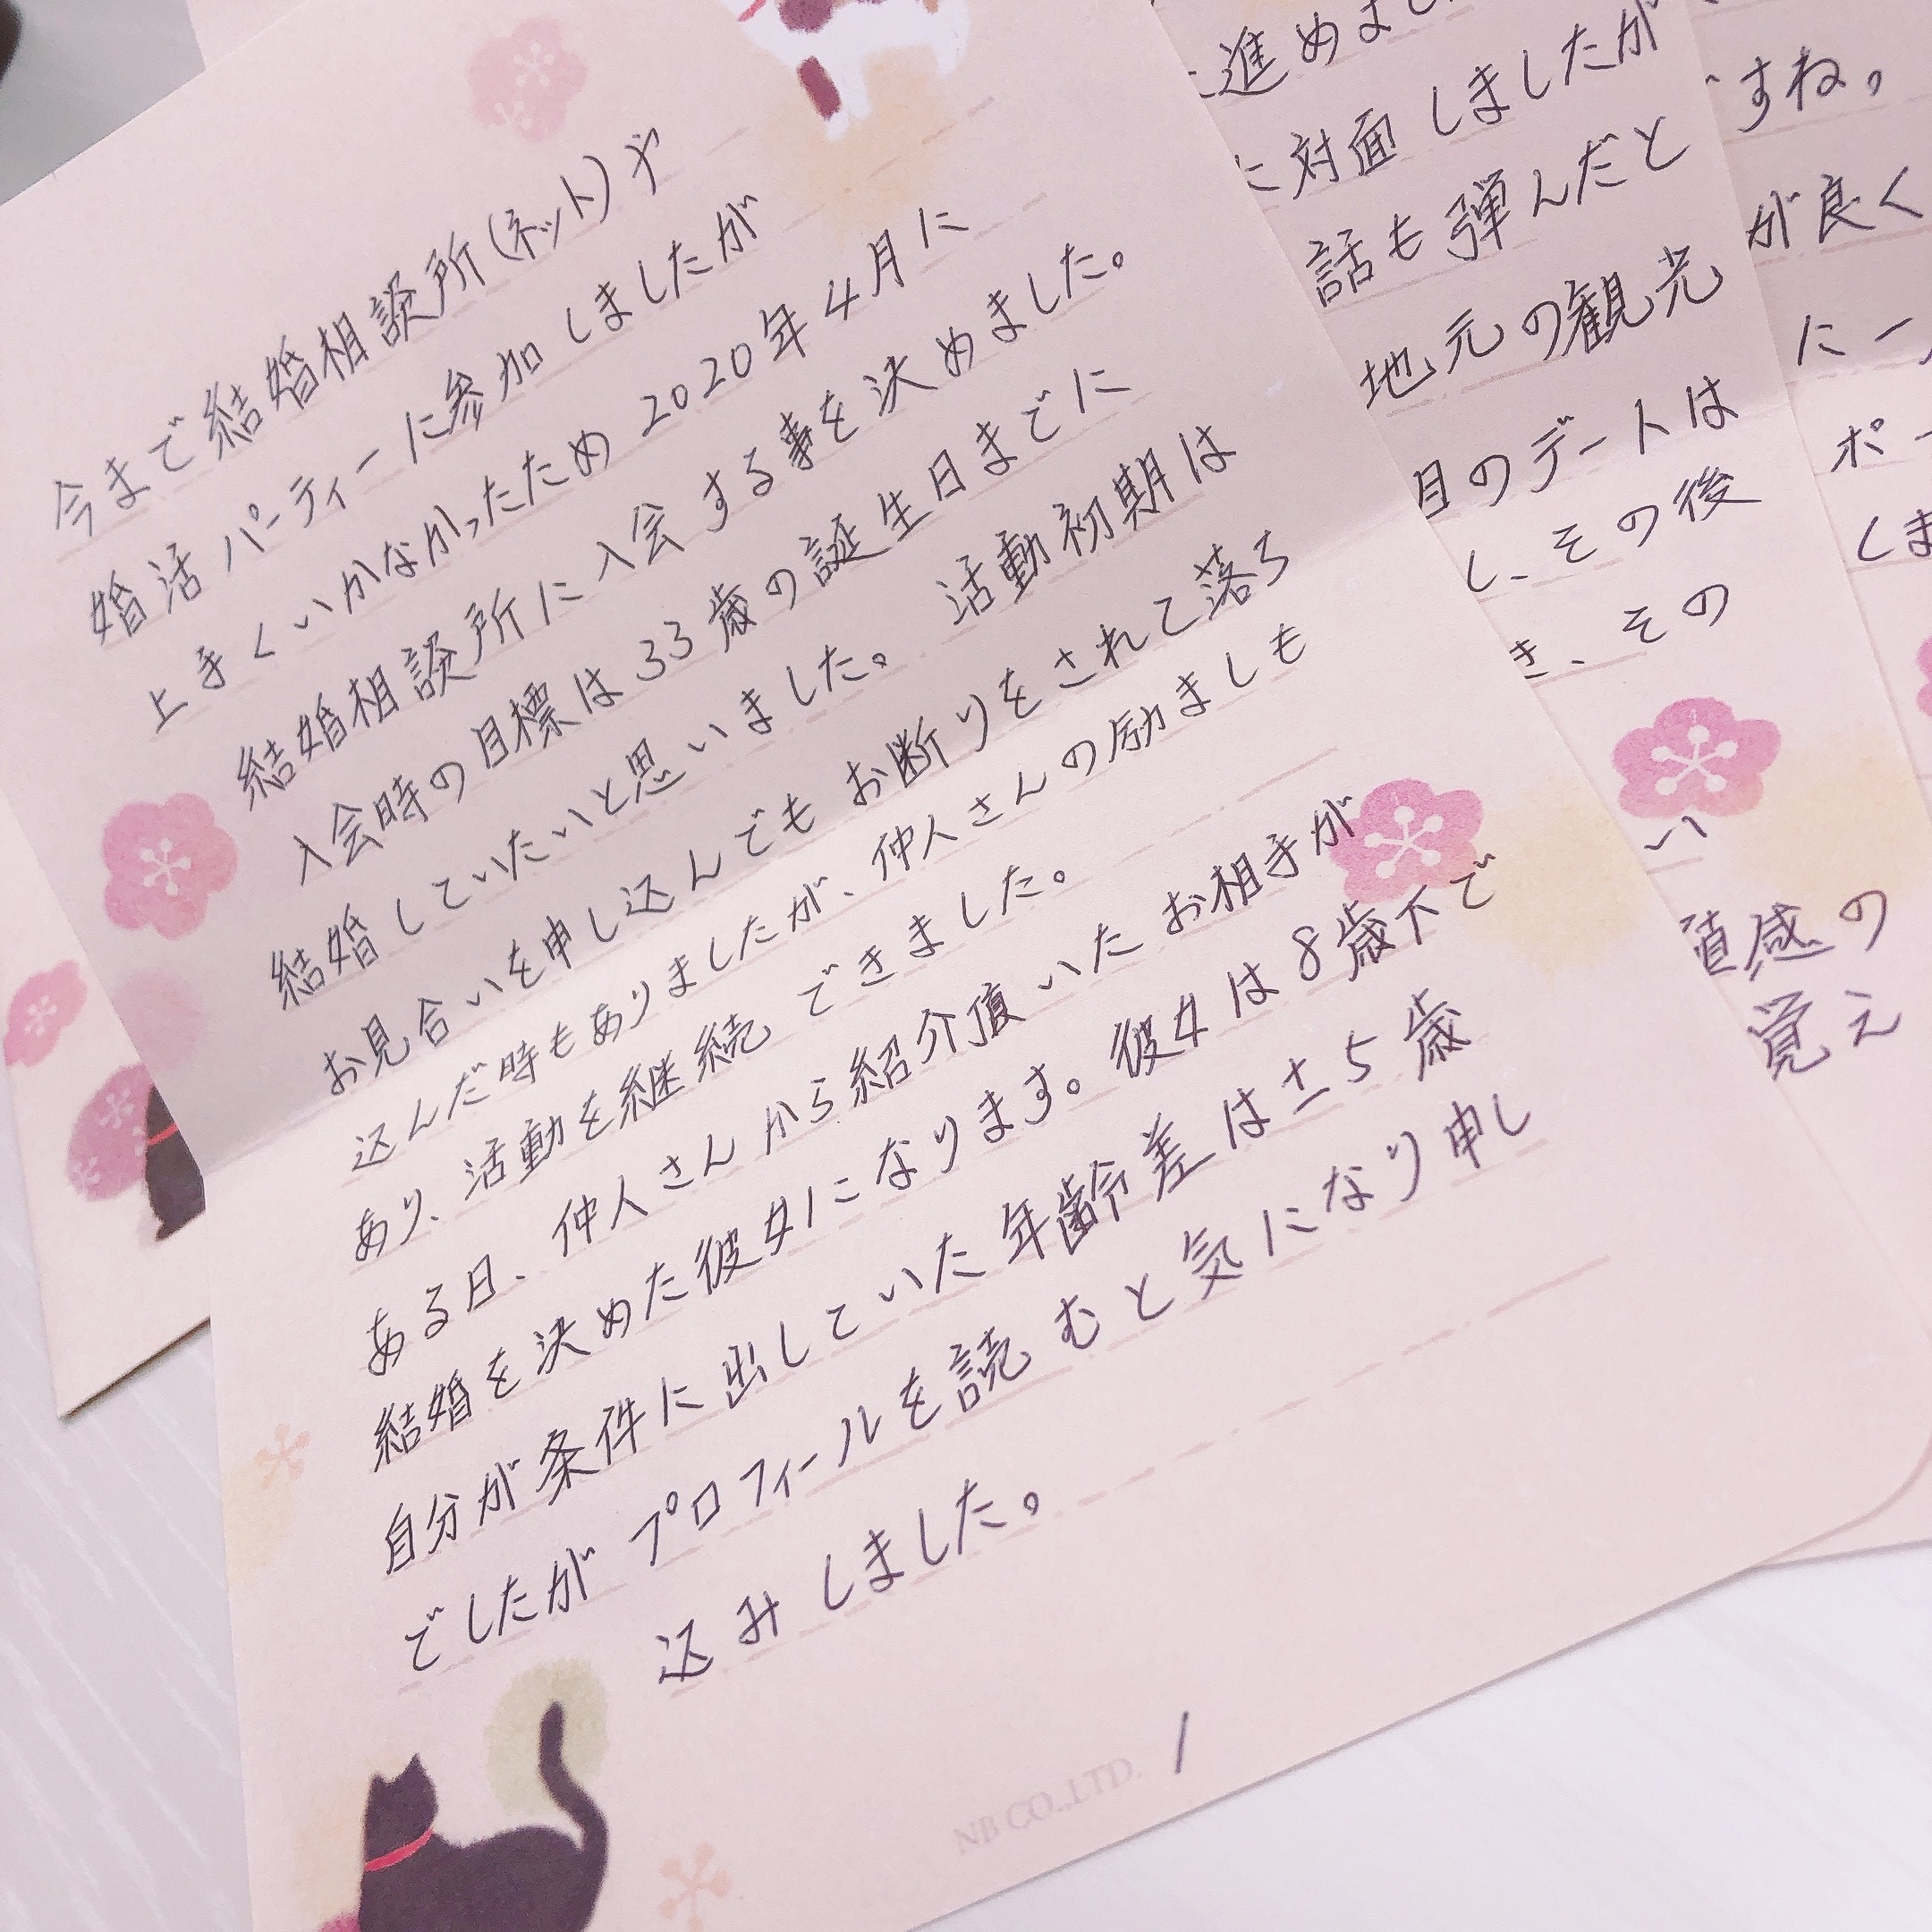 今まで結婚相談所(ネット)や
婚活パーティーに参加しましたが
上手くいかなかったため2020年4月に
結婚相談所に入会する事を決めました。
入会時の目標は33歳の誕生日までに
結婚していたいと思いました。活動初期は
お見合いを申し込んでもお断りをされて落ち
込んだ時もありましたが、仲人さんの励ましも
あり、活動を継続できました。
ある日、仲人さんから紹介頂いたお相手が
結婚を決めた彼女になります。彼女は8歳下で
自分が条件に出していた年齢差は±5歳
でしたがプロフィールを読むと気になり申し
込みしました。
NB CO.,LTD. 1
進めまし
対面しましたが
話も弾んだと
地元の観光
目のデートは
し、その後
き、その
い
直感の
覚え
すね。
が良く
に一
ポー
しま